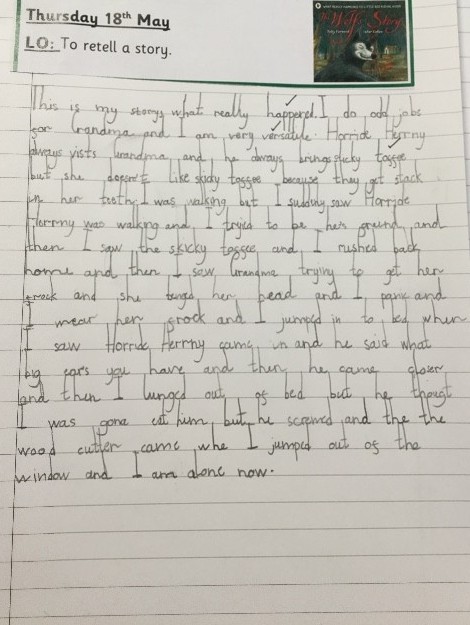 Thursday 18th May
LO: To retell a story.
The Wolf's Story
This is my storys what really happened. I do odd jobs
for Grandma and I am very versatile. Horride Herrny
always vists Grandma and he always brings sticky toffee
but she doesn't like sticky toffee because they get stack
in her teeth. I was walking but I suddnly saw Horride
Herrmy was walking and I tryied to be he's freind and
then I saw the skicky toffee and I rushed back
home and then I saw Grandma trying to get her
frock and she banged her head and I panic and
I wear her frock and I jumped in to bed when
I saw Horride Herrmy came in and he said what
big ears you have and then he came closer
and then I lunged out of bed but he thougt
I was gona eat him but he scremed and the the
wood cutter came whe I jumped out of the
window and I am alone now.